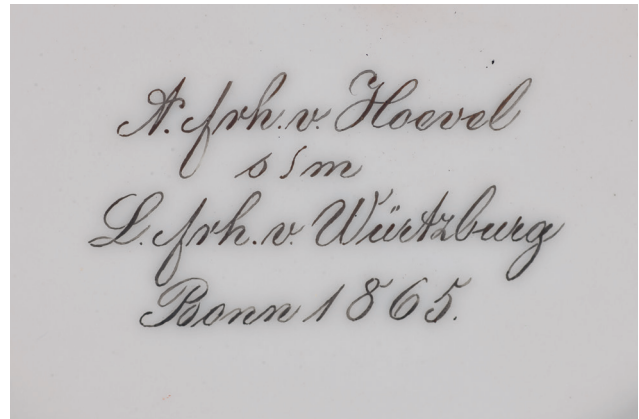 A. frh. v. Hoevel
s/m
L. frh. v. Würtzburg
Bonn 1865.